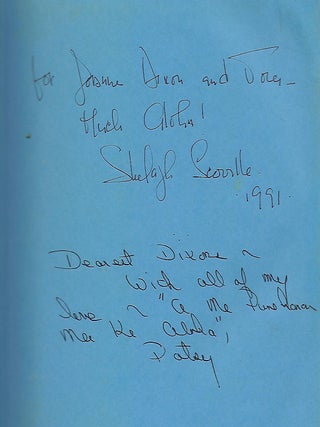 for Joanne Dixon and Tony –
Much Aloha!
Shelagh Scoville
1991.
Dearest Dixons ~
With all of my
love ~ "A Me
Mea Ke Aloha",
Patsy